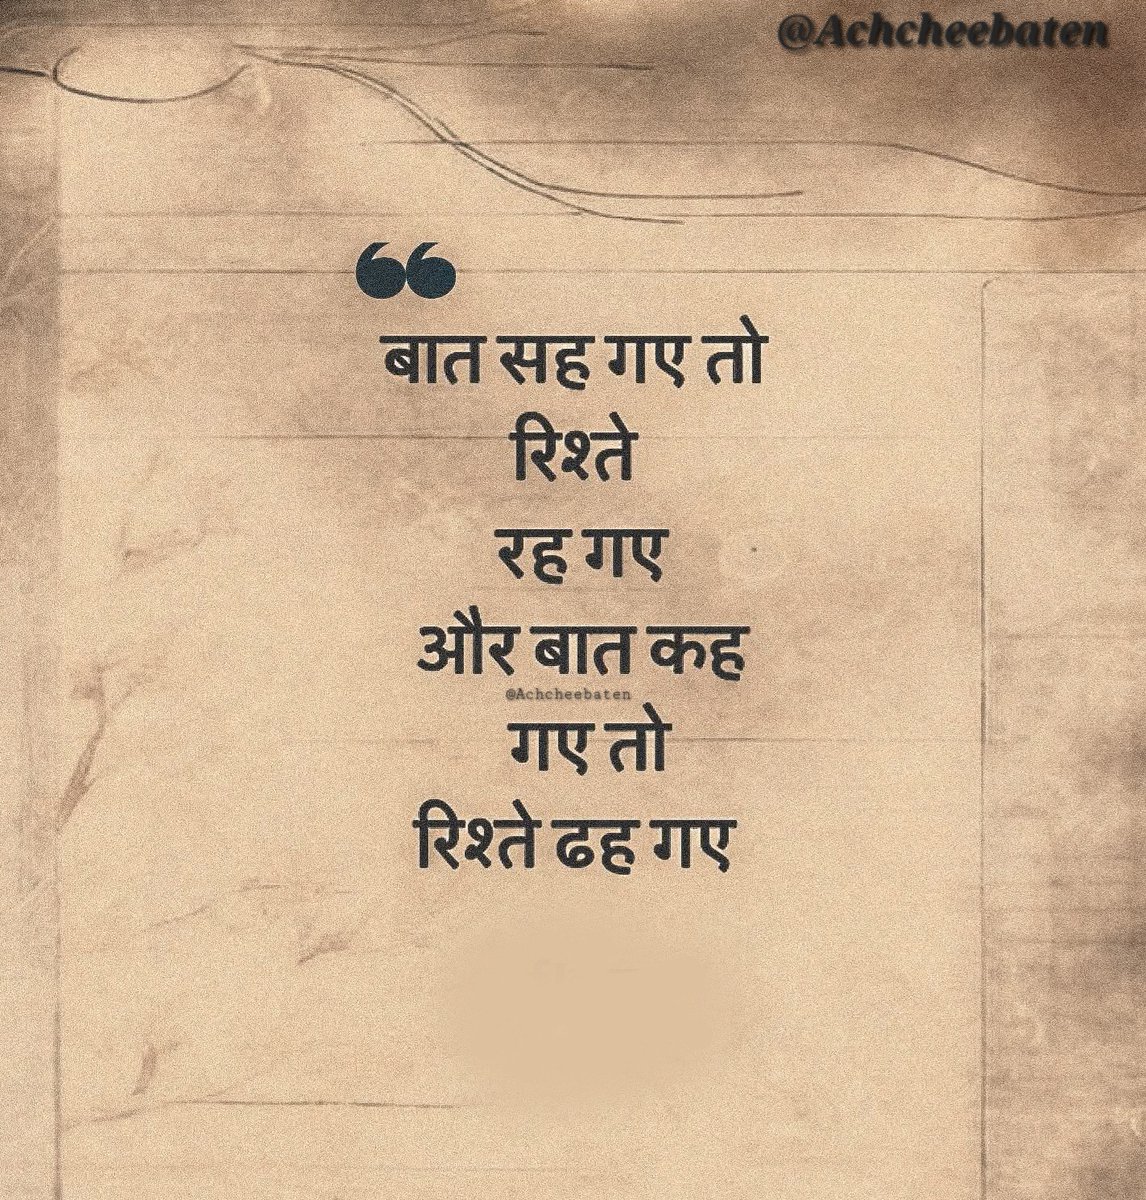 @Achcheebaten
❝
बात सह गए तो
रिश्ते
रह गए
और बात कह
@Achcheebaten
गए तो
रिश्ते ढह गए